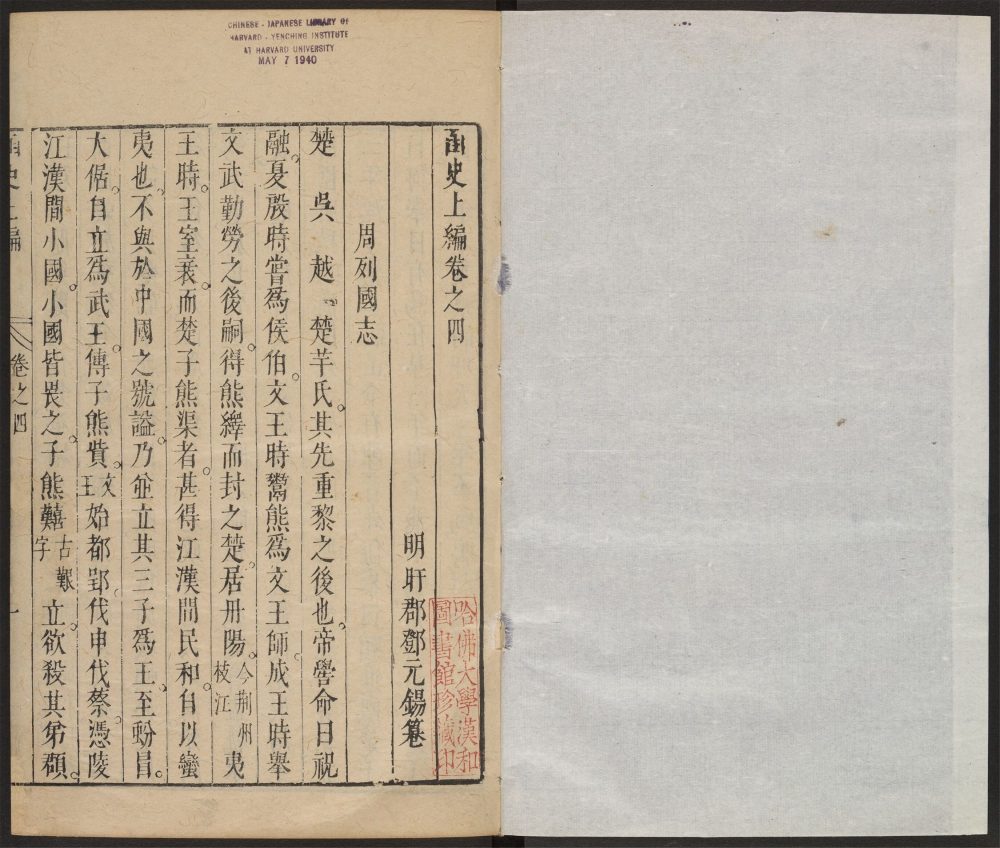 CHINESE - JAPANESE LIBRARY OF
HARVARD - YENCHING INSTITUTE
AT HARVARD UNIVERSITY
MAY 7 1940
函史上編卷之四
明盱郡鄧元錫纂
哈佛大學漢和
圖書館珍藏印
周列國志
楚 吳 越 楚芊氏其先重黎之後也帝嚳命曰祝
融夏殷時嘗爲侯伯文王時鬻熊爲文王師成王時舉
文武勤勞之後嗣得熊繹而封之楚居丹陽今荆州枝江夷
王時王室衰而楚子熊渠者甚得江漢間民和自以蠻
夷也不與於中國之號謚乃並立其三子爲王至蚡冒
大倨自立爲武王傳子熊貲文王始都郢伐申伐蔡憑陵
江漢間小國小國皆畏之子熊囏古艱字立欲殺其弟頵
函史上編
卷之四
一